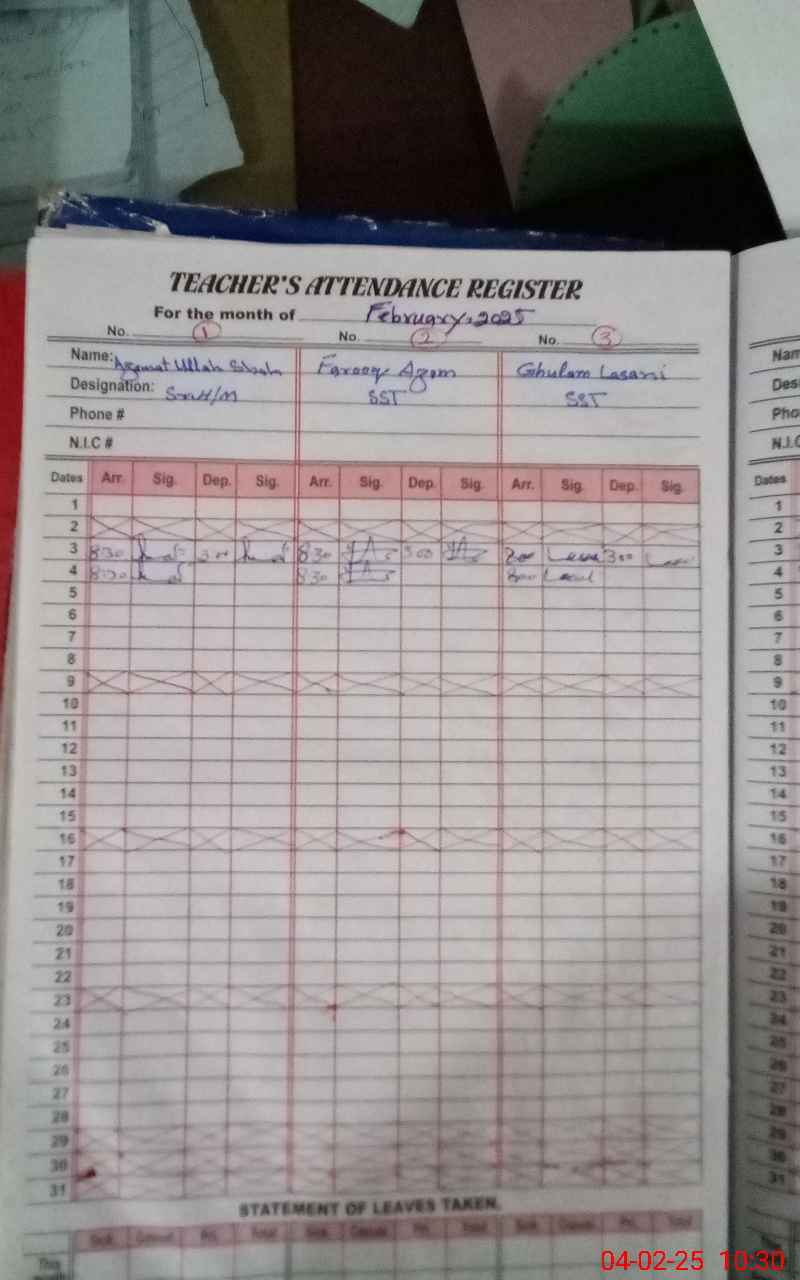 TEACHER'S ATTENDANCE REGISTER
For the month of February, 2025
No. 1 No. 2 No. 3
Name: Azamat Ullah Farooq Azam Ghulam Lasani
Designation: SST SST
Phone #
N.I.C #
Dates Arr. Sig. Dep. Sig. Arr. Sig. Dep. Sig. Arr. Sig. Dep. Sig.
1
2
3 830 300 830 300 800 300
4 830 830 800
5
6
7
8
9
10
11
12
13
14
15
16
17
18
19
20
21
22
23
24
25
26
27
28
29
30
31
STATEMENT OF LEAVES TAKEN.
Sick. Casual. Pri. Total Sick. Casual. Pri. Total Sick. Casual. Pri. Total
This
month
Nam
Des
Pho
N.I.C
Dates
1
2
3
4
5
6
7
8
9
10
11
12
13
14
15
16
17
18
19
20
21
22
23
24
25
26
27
28
29
30
31
04-02-25 10:30